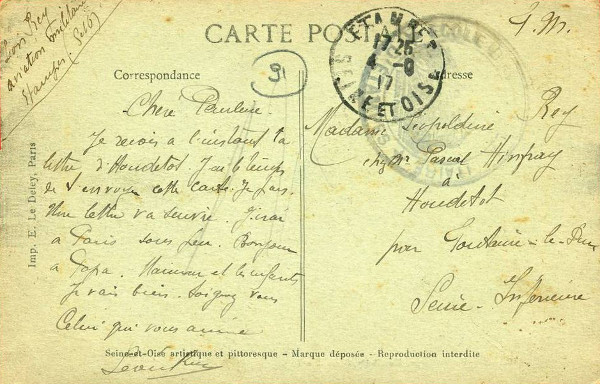 Léon Rey
aviation militaire
Etampes (S et O)
F.M.
CARTE POSTALE
ETAMPES
17-25
4-9
17
SEINE ET OISE
ECOLE
31
Correspondance
Adresse
Chère Pauline.
Je reçois à l'instant ta
lettre d'Houdetot J'ai le temps
de t'envoyer cette carte. Je pars.
Une lettre va suivre. J'irai
à Paris sous peu. Bonjour
à Papa. Maman et les enfants
Je vais bien. Soignez vous
Celui qui vous aime
Léon Rey
Madame Léopoldine Rey
chez Mr Pascal
à
Houdetot
par Fontaine-le-Dun
Seine-Inférieure
Imp. E. Le Deley, Paris
Seine-et-Oise artistique et pittoresque - Marque déposée - Reproduction interdite